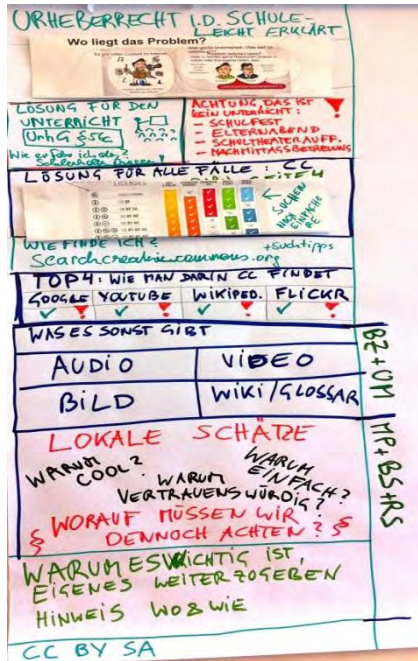 URHEBERRECHT I.D. SCHULE-
LEICHT ERKLÄRT
Wo liegt das Problem?
LÖSUNG FÜR DEN
UNTERRICHT
UrhG §52a
Wie erfahr ich das?
ACHTUNG, DAS IST
KEIN UNTERRICHT:
- SCHULFEST
- ELTERNABEND
- SCHULTHEATERAUFF.
- NACHMITTAGSBETREUUNG
LÖSUNG FÜR ALLE FÄLLE CC
LICENSES
SUCHEN
NACH
WIE FINDE ICH?
+Suchtipps
Search.creativecommons.org
TOP4: WIE MAN DARIN CC FINDET
GOOGLE YOUTUBE WIKIPED. FLICKR
WAS ES SONST GIBT
AUDIO VIDEO
BILD WIKI/GLOSSAR
BZ+OM
LOKALE SCHÄTZE
WARUM COOL?
WARUM VERTRAUENSWÜRDIG?
WARUM EINFACH?
§ WORAUF MÜSSEN WIR
DENNOCH ACHTEN? §
MP+BS+RS
WARUM ES WICHTIG IST,
EIGENES WEITERZUGEBEN
HINWEIS WO & WIE
CC BY SA